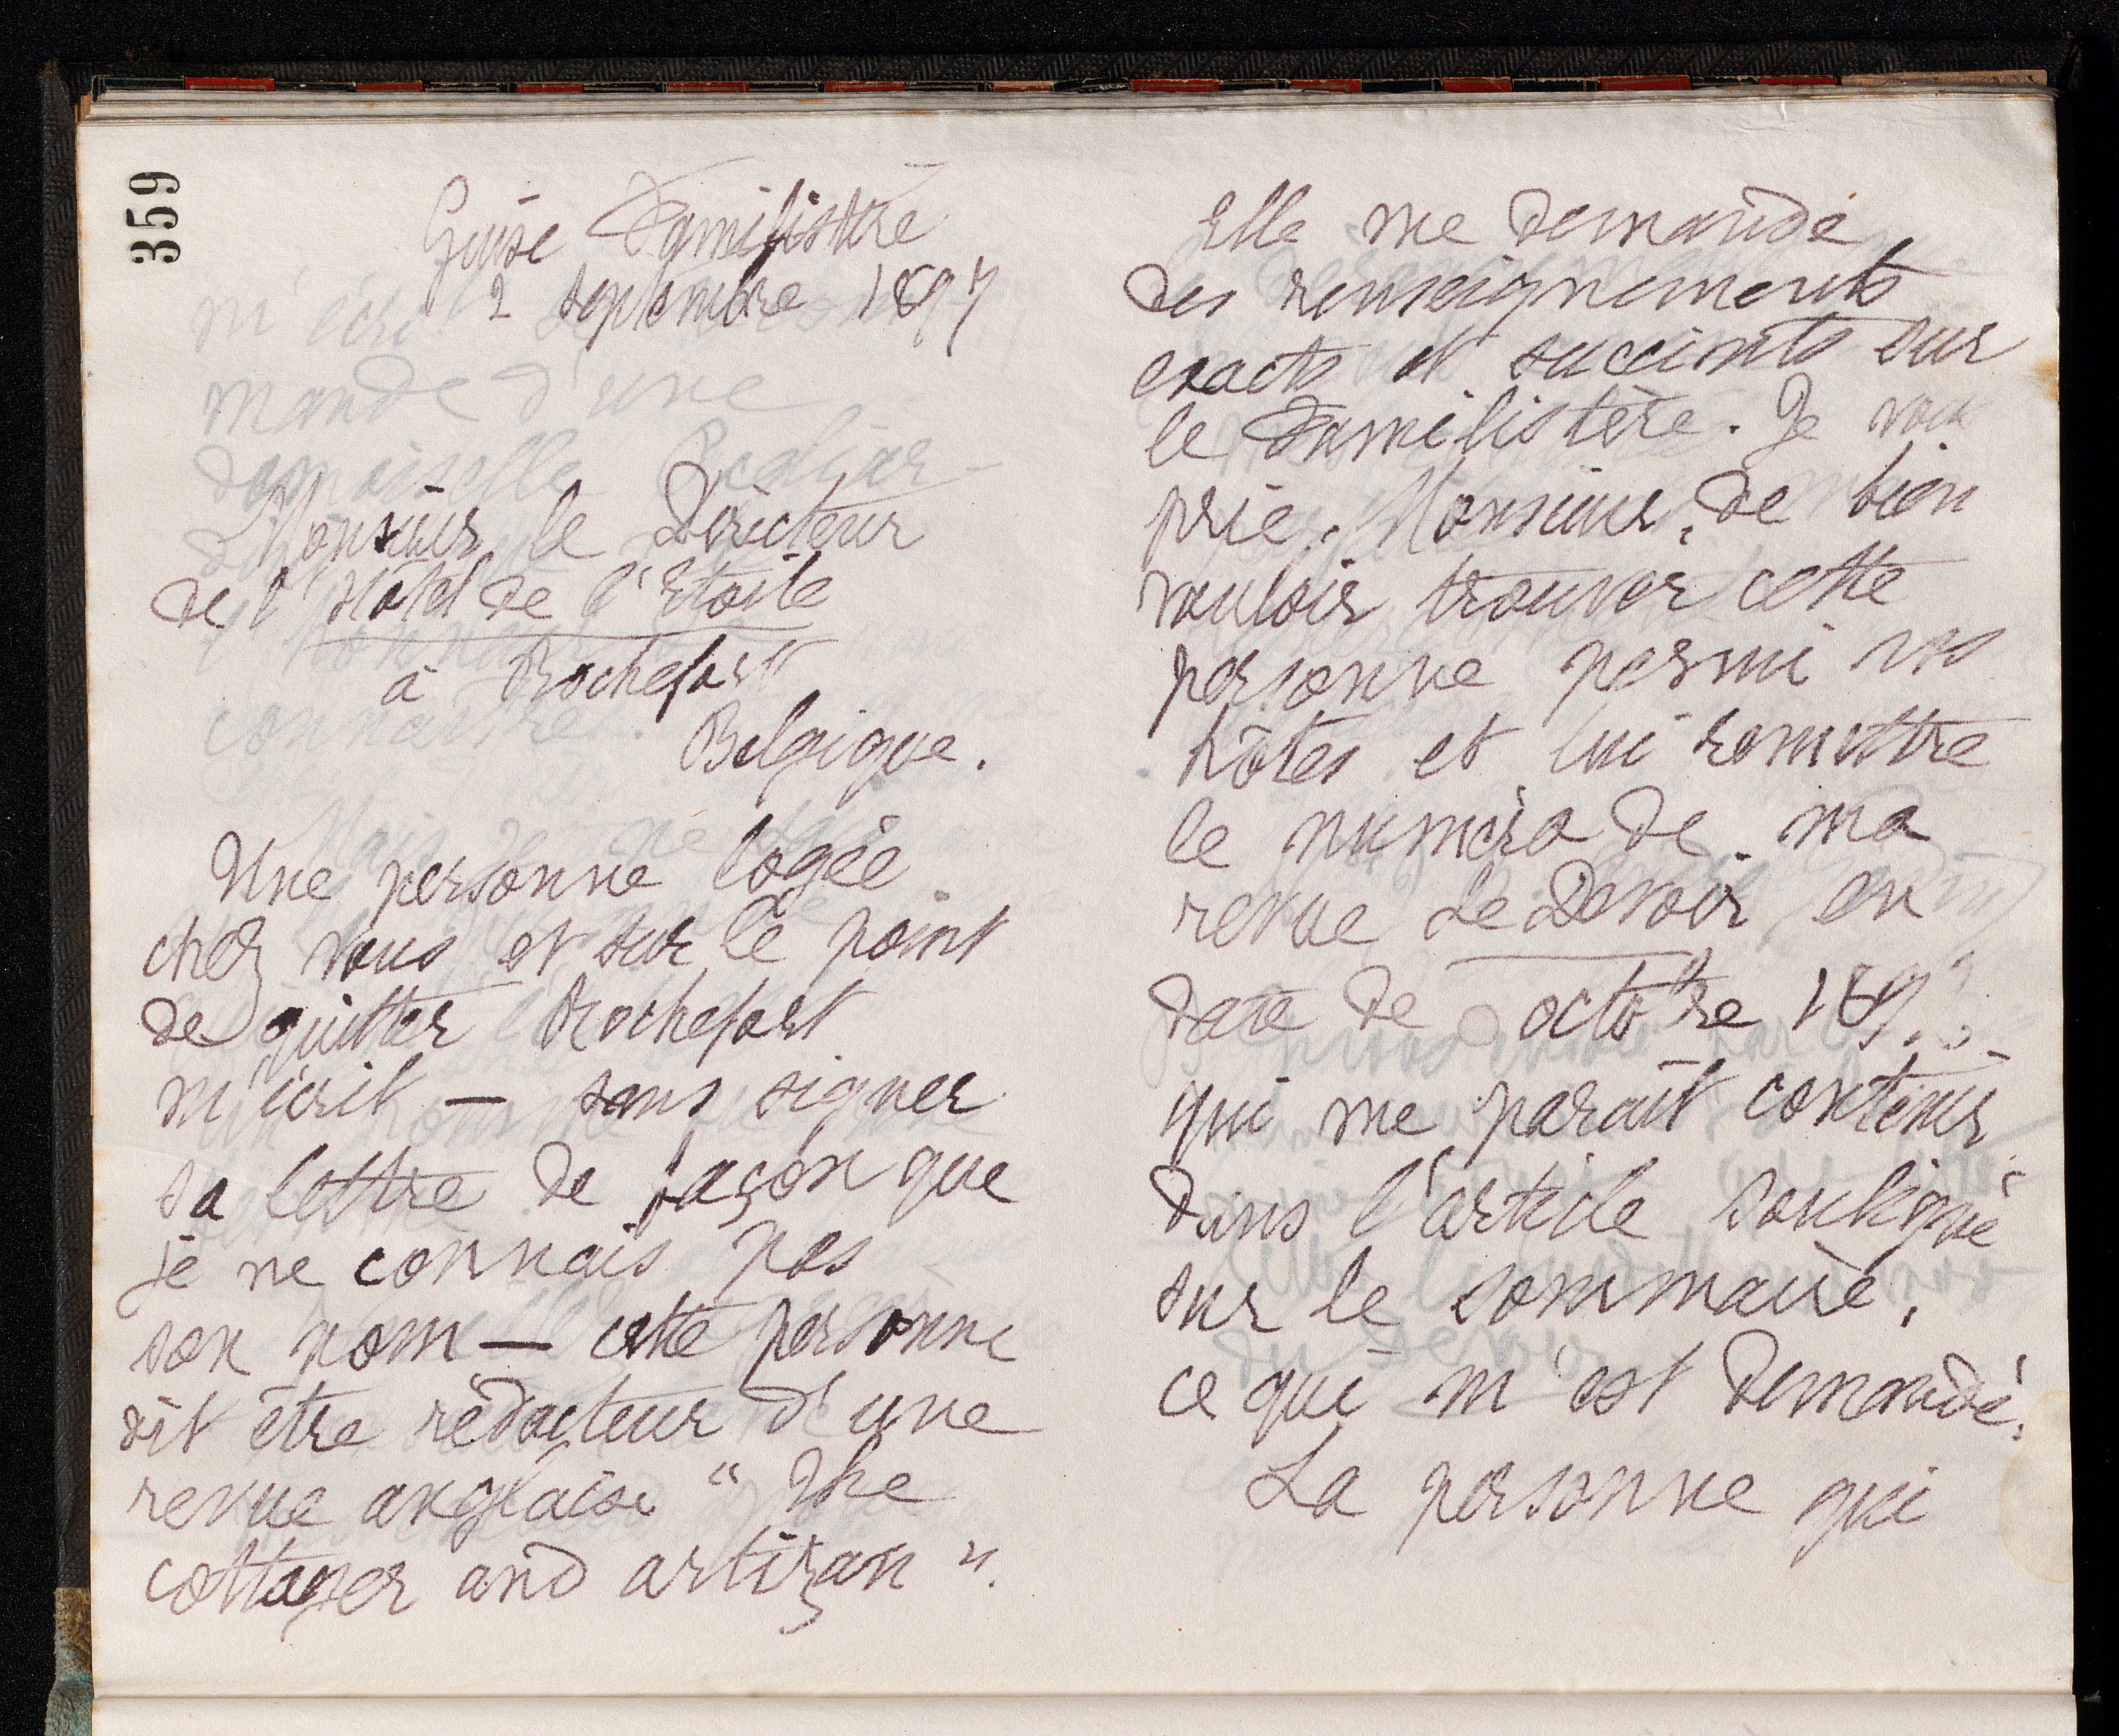 359
Guise Familistère
2 septembre 1897
Monsieur le Directeur
de l'Hôtel de l'Etoile
à Rochefort
Belgique.
Une personne logée
chez vous et sur le point
de quitter Rochefort
m'écrit — sans signer
sa lettre de façon que
je ne connais pas
son nom — cette personne
dit être rédacteur d'une
revue anglaise "The
cottager and artizan".
Elle me demande
des renseignements
exacts et succints sur
le Familistère. Je vous
prie, Monsieur, de bien
vouloir trouver cette
personne parmi vos
hôtes et lui remettre
le numéro de ma
revue Le Devoir en
date de octobre
qui me parait contenir
dans l'article souligné
sur le sommaire,
ce qui m'est demandé.
La personne qui